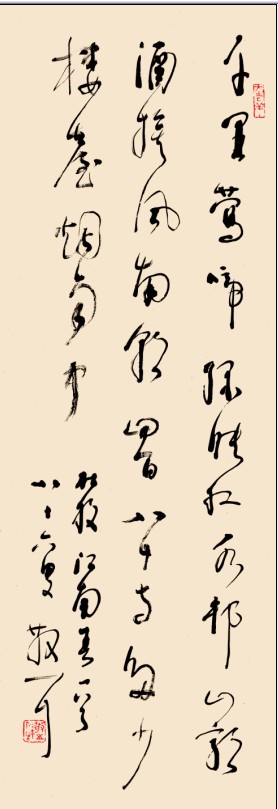 千里鶯啼綠映紅水邨山郭
酒旗風南朝四百八十寺多少
樓臺烟雨中
杜牧江南春一首
八十六叟 散耳